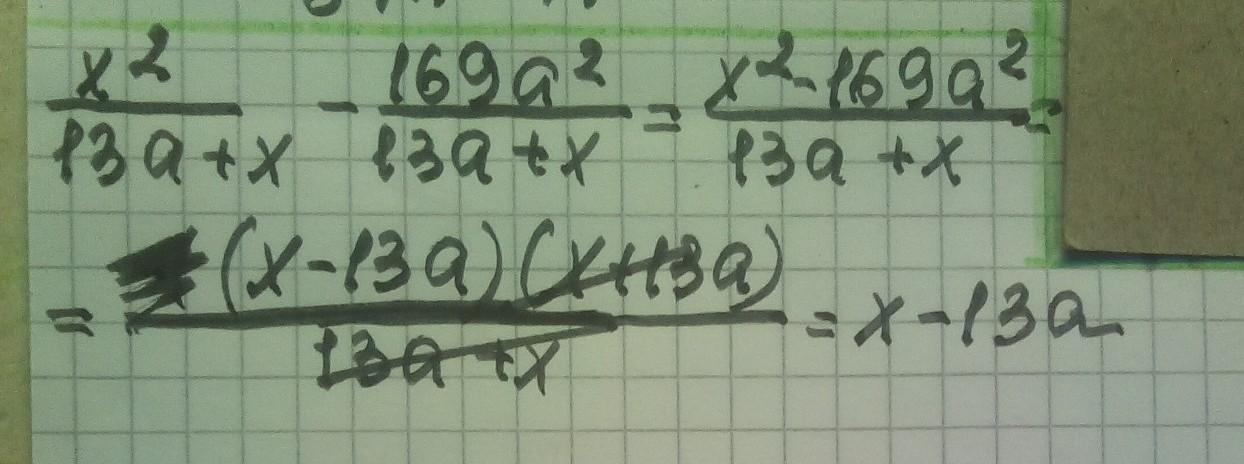 x²/13a+x - 169a²/13a+x = x²-169a²/13a+x =
= (x-13a)(x+13a)/13a+x = x-13a